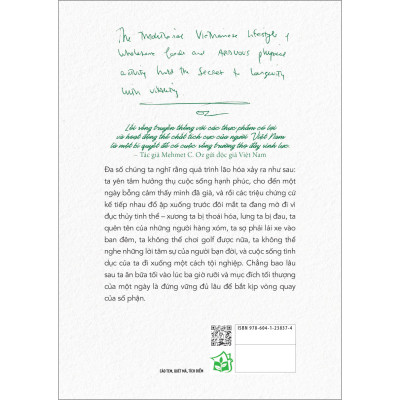 The Traditional Vietnamese Lifestyle of
wholesome foods and arduous physical
activity hold the Secret to Longevity
with vitality
Lối sống truyền thống với các thực phẩm có lợi
và hoạt động thể chất tích cực của người Việt Nam
là một bí quyết để có cuộc sống trường thọ đầy sinh lực.
– Tác giả Mehmet C. Oz gửi độc giả Việt Nam
Đa số chúng ta nghĩ rằng quá trình lão hóa xảy ra như sau:
ta yên tâm hưởng thụ cuộc sống hạnh phúc, cho đến một
ngày bỗng cảm thấy mình đã già, và rồi các triệu chứng cứ
kế tiếp nhau đổ ập xuống trước đôi mắt ta đang mờ đi vì
đục thủy tinh thể – xương ta bị thoái hóa, lưng ta bị đau, ta
quên tên của những người hàng xóm, ta sợ phải lái xe vào
ban đêm, ta không thể chơi golf được nữa, ta không thể
nghe những lời tâm sự của người bạn đời, và cuộc sống tình
dục của ta đi xuống một cách tội nghiệp. Chẳng bao lâu
sau ta ăn bữa tối vào lúc ba giờ rưỡi và mục đích tối thượng
của một ngày là đứng vững đủ lâu để bắt kịp vòng quay
của số phận.
ISBN 978-604-1-23837-4
CÀO TEM, QUÉT MÃ, TÍCH ĐIỂM